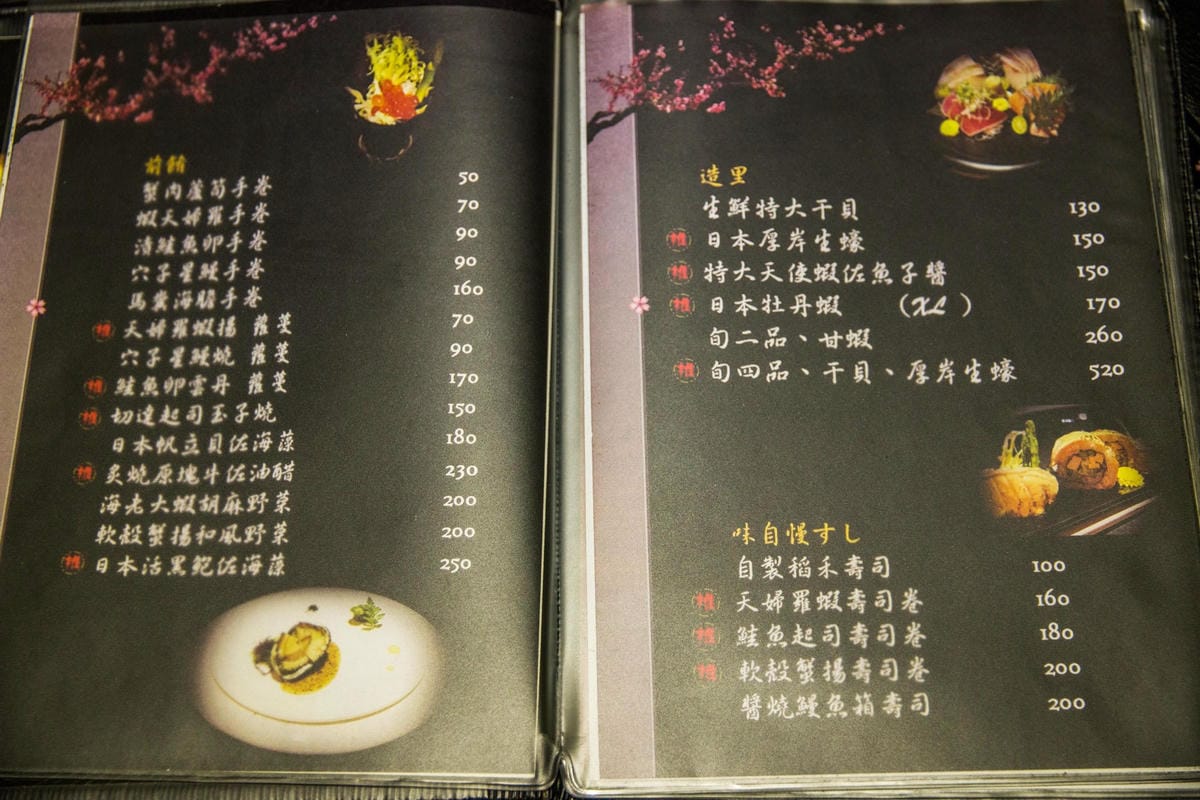 前餚
蟹肉蘆筍手卷 50
蝦天婦羅手卷 70
漬鮭魚卵手卷 90
穴子星鰻手卷 90
馬糞海膽手卷 160
推 天婦羅蝦揚 蘿蔓 70
穴子星鰻燒 蘿蔓 90
推 鮭魚卵雲丹 蘿蔓 170
推 切達起司玉子燒 150
日本帆立貝佐海藻 180
推 炙燒原塊牛佐油醋 230
海老大蝦胡麻野菜 200
軟殼蟹揚和風野菜 200
推 日本活黑鮑佐海藻 250
造里
生鮮特大干貝 130
推 日本厚岸生蠔 150
推 特大天使蝦佐魚子醬 150
推 日本牡丹蝦 (XL) 170
旬二品、甘蝦 260
推 旬四品、干貝、厚岸生蠔 520
味自慢すし
自製稻禾壽司 100
推 天婦羅蝦壽司卷 160
推 鮭魚起司壽司卷 180
推 軟殼蟹揚壽司卷 200
醬燒鰻魚箱壽司 200